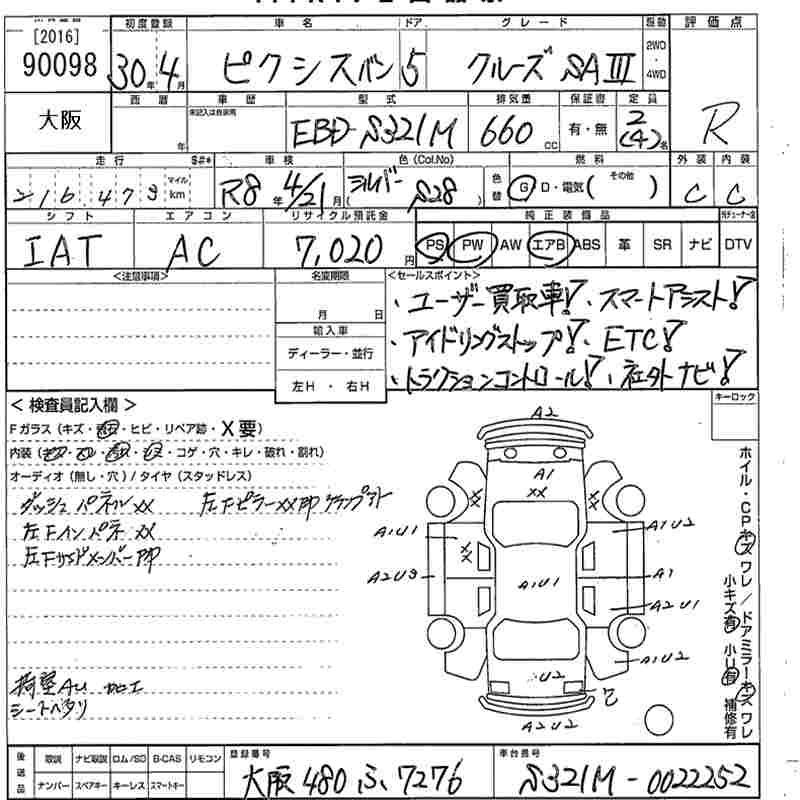 [2016] 初度登録 車名 ドア グレード 駆動 評価点
90098 30年 4月 ピクシスバン 5 クルーズ SAⅢ 2WD・4WD R
大阪 西暦 年 車歴 未記入は自家用 型式 EBD-S321M 排気量 660 cc 保証書 有・無 定員 2(4)名
走行 216,473 マイル km S#* 車検 R8年 4/21月 色(Col.No) シルバー S28 色替 燃料 G D・電気( その他 ) 外装 C 内装 C
シフト IAT エアコン AC リサイクル預託金 7,020円 純正装備品 PS PW AW エアB ABS 革 SR ナビ DTV
<注意事項> 名変期限 月 日 <セールスポイント>
・ユーザー買取車! ・スマートアシスト!
輸入車 ディーラー・並行 ・アイドリングストップ! ・ETC!
左H・右H ・トラクションコントロール! ・社外ナビ!
<検査員記入欄> キーロック
Fガラス(キズ・補回・ヒビ・リペア跡・X要)
内装(キズ・コゲ・穴・キレ・破れ・割れ)
オーディオ(無し・穴)/タイヤ(スタッドレス)
ダッシュパネルXX 左FピラーXXAP クランプアト
左FインパネXX
左FサイドメンバーAP
荷室AU 加工
シートヘタリ
A2
A1
XX
XX
XX
XX
A1U1
A1U2
A2U3
A1U1
A1
A2U1
A1U2
U2
A2U2
ホイル・CPキズワレ/ドアミラーキズワレ
小キズ有 小U有 補修有
後送品 取説 ナビ取説 ロム/SD B-CAS リモコン 登録番号 車台番号
ナンバー スペアキー キーレス スマートキー 大阪 480 ふ 7276 S321M-0022252